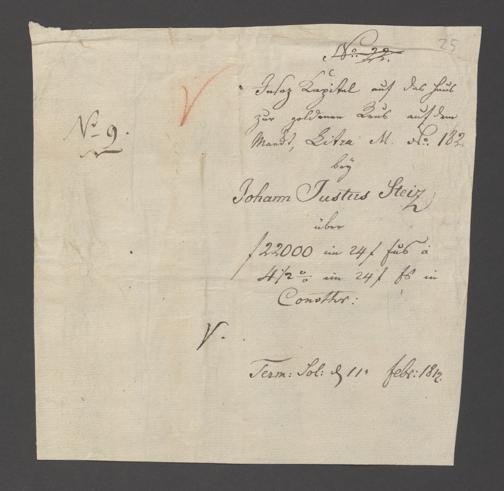 25
No. 22.
Insaz Kapital auf das Haus
zur goldenen auf dem
Markt, Litra M. No. 182
bey
Johann Justus Steiz
über
f 22000 im 24 f Fus à
4 1/2 % im 24 f fs in
No 9.
V.
Term: Sol: d 11 febr: 1812.